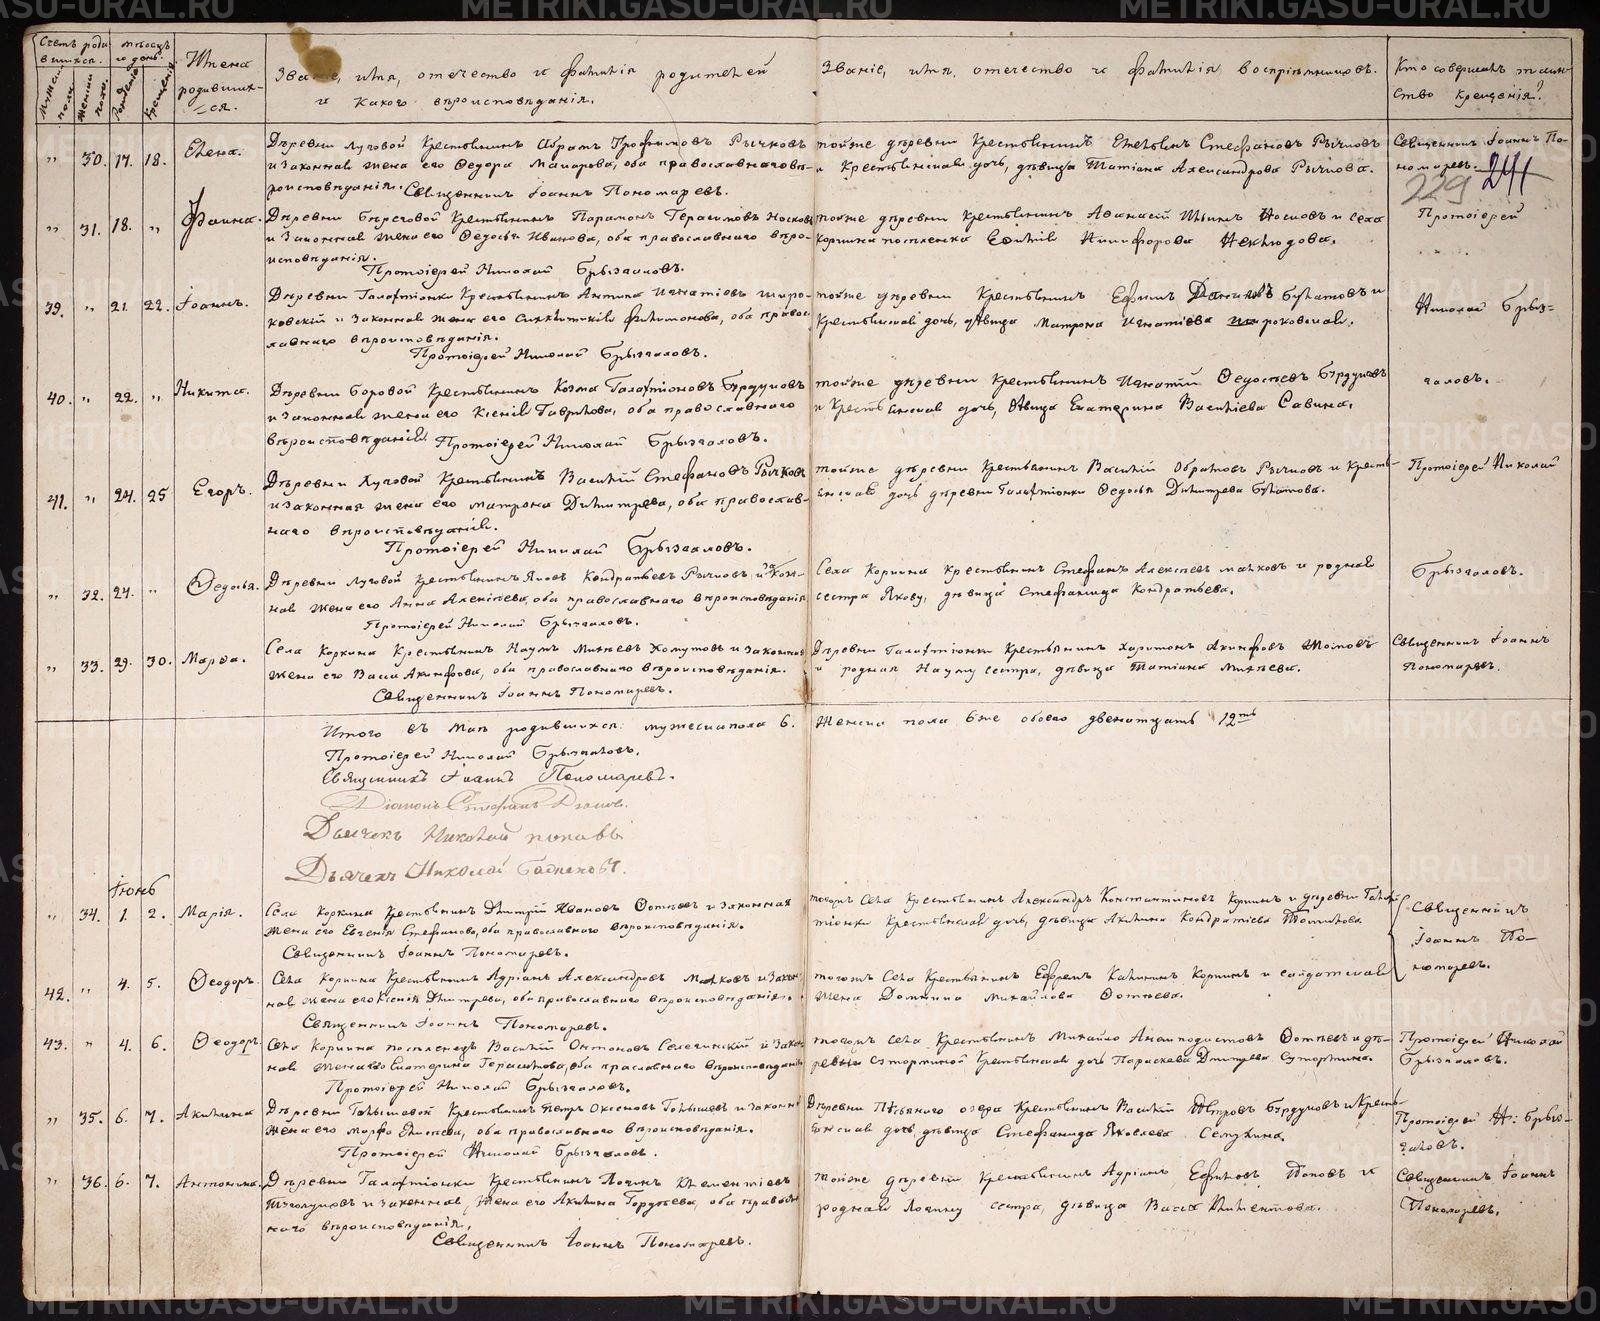 Счетъ родившихся.
Мужеска пола.
Женска пола.
Мѣсяцъ и день.
Рожденія
Крещенія
Имена родившихся.
Званіе, имя, отечество и фамилія родителей
и какого вѣроисповѣданія.
Званіе, имя, отечество и фамилія воспріемниковъ.
Кто совершалъ таинство крещенія?
" 30. 17. 18. Елена.
Деревни Луговой Крестьянинъ Абрамъ Трофимовъ Рычковъ
и законная жена его Ѳедора Макарова, оба православнаго вѣ-
роисповѣданія. Священникъ Іоаннъ Пономаревъ.
тойже деревни Крестьянинъ Стефановъ Рычковъ
и Крестьянская дочь, дѣвица Татіана Александрова Рычкова.
Священникъ Іоаннъ По-
номаревъ.
229 241
" 31. 18. " Фаина.
Деревни Береговой Крестьянинъ Парамонъ Герасимовъ Носковъ
и законная жена его Ѳедосья Иванова, оба православнаго вѣро-
исповѣданія.
Протоіерей Николай Брызгаловъ.
тойже деревни Крестьянинъ Аѳанасій Ильинъ Носковъ и села
Коркина поселенка Никифорова Неклюдова.
Протоіерей
39. " 21. 22. Іоаннъ.
Деревни Галактіонки Крестьянинъ Антипа Игнатіевъ Широ-
ковскій и законная жена его Синклитикія Филимонова, оба правос-
лавнаго вѣроисповѣданія.
Протоіерей Николай Брызгаловъ.
тойже деревни Крестьянинъ Ефимъ Даниловъ Булатовъ и
Крестьянская дочь, дѣвица Матрона Игнатіева Широковская.
Николай Брыз-
40. " 22. " Никита.
Деревни Боровой Крестьянинъ Козма Галактіоновъ Бурдуковъ
и законная жена его Ксенія Гаврилова, оба православнаго
вѣроисповѣданія. Протоіерей Николай Брызгаловъ.
тойже деревни Крестьянинъ Игнатій Ѳедосѣевъ Бурдуковъ
и Крестьянская дочь, дѣвица Екатерина Василіева Савина.
галовъ.
41. " 24. 25 Егоръ.
Деревни Луговой Крестьянинъ Василій Стефановъ Рычковъ
и законная жена его Матрона Димитрева, оба православ-
наго вѣроисповѣданія.
Протоіерей Николай Брызгаловъ.
тойже деревни Крестьянинъ Василій Рычковъ и кресть-
янская дочь деревни Галактіонки Ѳедосья Димитрева Булатова.
Протоіерей Николай
" 32. 24. " Ѳедосья.
Деревни Луговой Крестьянинъ Яковъ Кондратьевъ Рычковъ и закон-
ная жена его Анна Алексѣева, оба православнаго вѣроисповѣданія
Протоіерей Николай Брызгаловъ.
Села Коркина Крестьянинъ Стефанъ Алексѣевъ Малковъ и родная
сестра Якову, дѣвица Стефанида Кондратьева.
Брызгаловъ.
" 33. 29. 30. Марѳа.
Села Коркина Крестьянинъ Наумъ Михѣевъ Хомутовъ и законная
жена его Васса Акинфова, оба православнаго вѣроисповѣданія.
Священникъ Іоаннъ Пономаревъ.
Деревни Галактіонки Крестьянинъ Харитонъ Акинфовъ
и родная Науму сестра, дѣвица Татіана Михѣева.
Священникъ Іоаннъ
Пономаревъ.
Итого въ Маѣ родившихся: мужеска пола 6.
Женска пола 6 же обоего двенатцать 12ть
Протоіерей Николай Брызгаловъ.
Священникъ Іоаннъ Пономаревъ.
Діаконъ Стефанъ
Дьячекъ Николай Поповъ
Дьячекъ Николай
Іюнь
" 34. 1. 2. Марія.
Села Коркина Крестьянинъ Дмитрій Ивановъ Ѳотѣевъ и законная
жена его Евгенія Стефанова, оба православнаго вѣроисповѣданія.
Священникъ Іоаннъ Пономаревъ.
тогожъ Села Крестьянинъ Александръ Константиновъ Коркинъ и деревни Галак-
тіонки Крестьянская дочь, дѣвица Акилина Кондратіева
Священникъ
Іоаннъ По-
номаревъ.
42. " 4. 5. Ѳеодоръ.
Села Коркина Крестьянинъ Адріанъ Александровъ Малковъ и закон-
ная жена его Ксенія Дмитрева, оба православнаго вѣроисповѣданія.
Священникъ Іоаннъ Пономаревъ.
тогожъ Села Крестьянинъ Ефремъ Калининъ Коркинъ и солдатская
жена Домнина Михайлова Ѳотѣева.
43. " 4. 6. Ѳеодоръ.
Села Коркина поселенецъ Василій Онтоновъ Селегинскій и закон-
ная жена его Екатерина Герасимова, оба праславнаго вѣроисповѣданія
Протоіерей Николай Брызгаловъ.
тогожъ села Крестьянинъ Михайло Анемподистовъ Ѳотѣевъ и де-
ревни Крестьянская дочь Параскева Дмитрева
Протоіерей Николай
Брызгаловъ.
" 35. 6. 7. Акилина
Деревни Голышевой Крестьянинъ Петръ Оксеновъ Голышевъ и законн
жена его Марфа оба православнаго вѣроисповѣданія.
Протоіерей Николай Брызгаловъ.
Деревни Пѣсьянаго озера Крестьянинъ Василій Петровъ Бурдуковъ и Кресть-
янская дочь дѣвица Стефанида Яковлева Семухина.
Протоіерей Н: Брыз-
галовъ.
" 36. 6. 7. Антонина.
Деревни Галактіонки Крестьянинъ Логинъ Клементіевъ
и законная жена его Акилина Гордѣева, оба православ-
наго вѣроисповѣданія.
Священникъ Іоаннъ Пономаревъ.
тойже деревни Крестьянинъ Адріанъ Ефимовъ Поповъ и
родная Логину сестра, дѣвица Васса Клементова.
Священникъ Іоаннъ
Пономаревъ.
METRIKI.GASU-URAL.RU